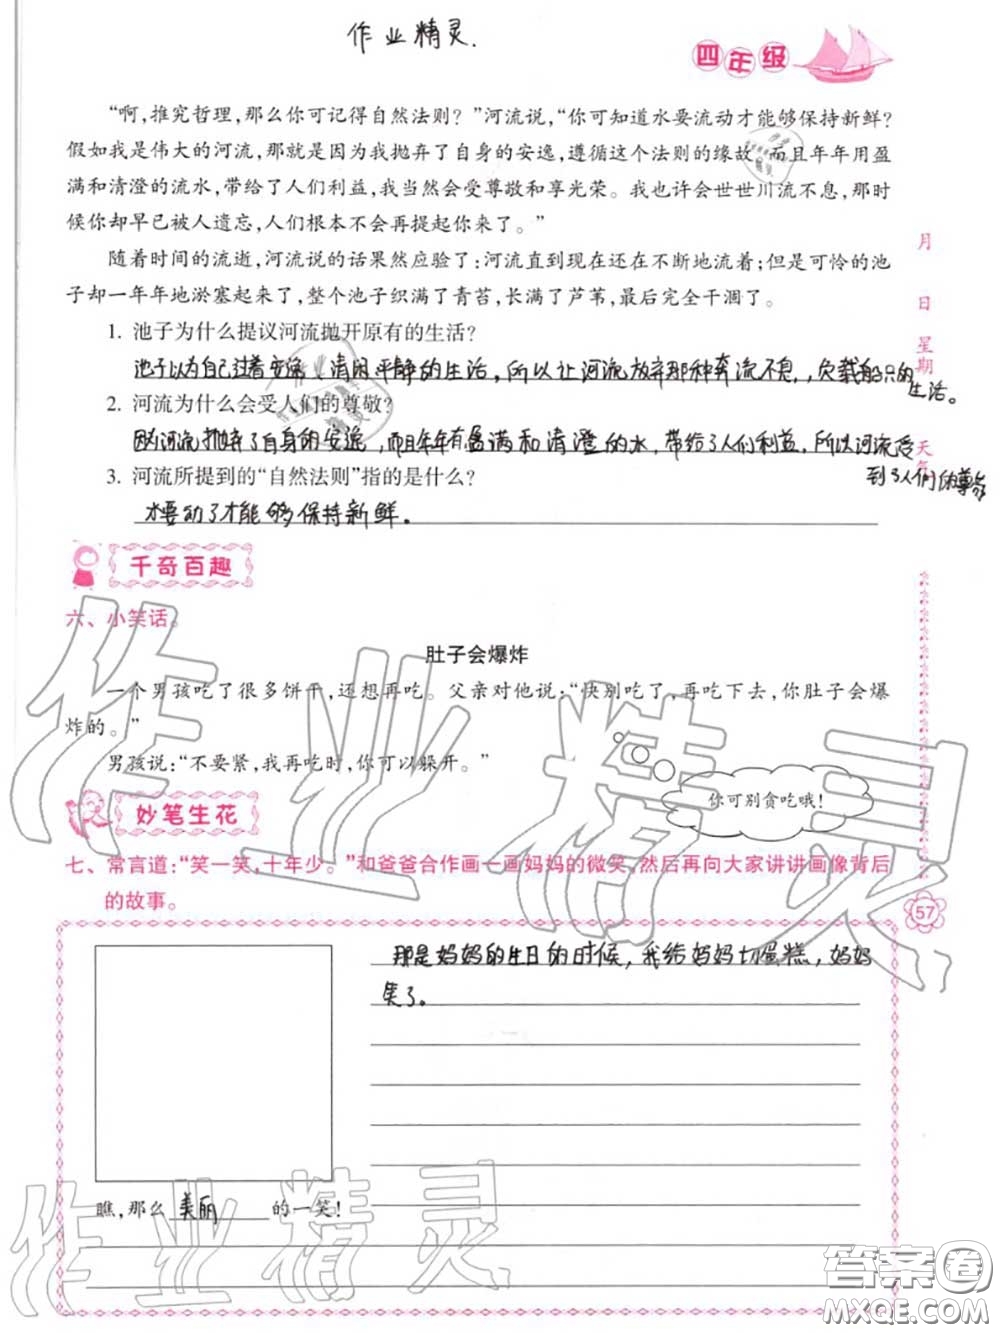 作业精灵.
四年级
“啊,推究哲理,那么你可记得自然法则？”河流说,“你可知道水要流动才能够保持新鲜？
假如我是伟大的河流,那就是因为我抛弃了自身的安逸,遵循这个法则的缘故。而且年年用盈
满和清澄的流水,带给了人们利益,我当然会受尊敬和享光荣。我也许会世世川流不息,那时
候你却早已被人遗忘,人们根本不会再提起你来了。”
随着时间的流逝,河流说的话果然应验了:河流直到现在还在不断地流着;但是可怜的池
子却一年年地淤塞起来了,整个池子织满了青苔,长满了芦苇,最后完全干涸了。
1. 池子为什么提议河流抛开原有的生活?
池子以为自己过着安逸、清闲平静的生活，所以让河流放弃那种奔流不息,，负载船只的
生活。
2. 河流为什么会受人们的尊敬?
因为河流抛弃了自身的安逸，而且年年有盈满和清澄的水，带给了人们利益，所以河流受
到了人们的尊敬
3. 河流所提到的“自然法则”指的是什么?
水要动了才能够保持新鲜。
月
日
星期
天气
千奇百趣
六、小笑话。
肚子会爆炸
一个男孩吃了很多饼干,还想再吃。父亲对他说:“快别吃了,再吃下去,你肚子会爆
炸的。”
男孩说:“不要紧,我再吃时,你可以躲开。”
你可别贪吃哦!
妙笔生花
七、常言道:“笑一笑,十年少。”和爸爸合作画一画妈妈的微笑,然后再向大家讲讲画像背后
的故事。
57
那是妈妈的生日的时候，我给妈妈切蛋糕，妈妈
笑了。
瞧,那么 美丽 的一笑!
作业精灵
作业精灵
答案圈
MXQE.COM